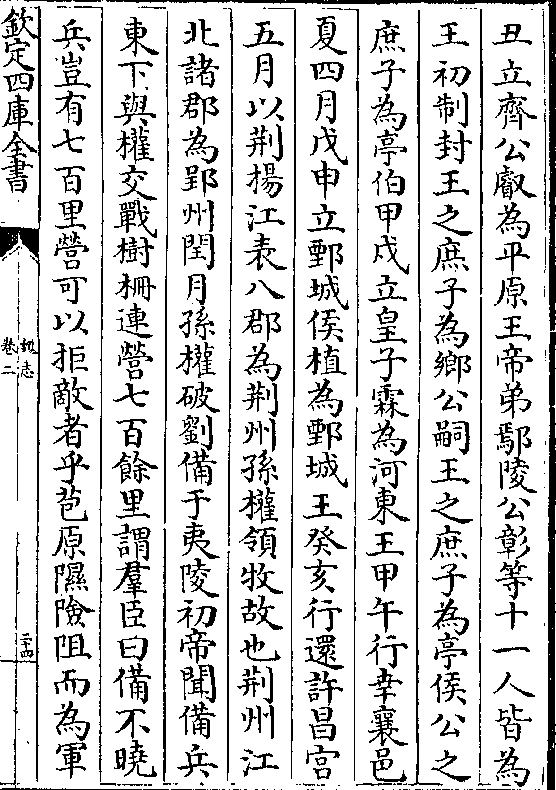 丑立齊公叡為平原王帝弟鄢陵公彰等十一人皆為
王初制封王之庶子為鄉公嗣王之庶子為亭侯公之
庶子為亭伯甲戌立皇子霖為河東王甲午行幸襄邑
夏四月戊申立鄄城侯植為鄄城王癸亥行還許昌宮
五月以荆揚江表八郡為荆州孫權領牧故也荆州江
北諸郡為郢州閏月孫權破劉備于夷陵初帝聞備兵
東下與權交戰樹柵連營七百餘里謂羣臣曰備不曉
兵豈有七百里營可以拒敵者乎苞原隰險阻而為軍
欽定四庫全書
魏志
卷二
二十四